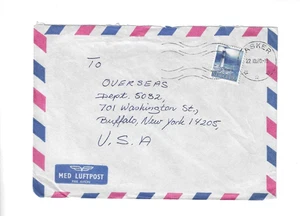 ASKER
To
OVERSEAS
Dept. 5032,
701 Washington St.,
Buffalo, New York 14205,
U.S.A
MED LUFTPOST
PAR AVION